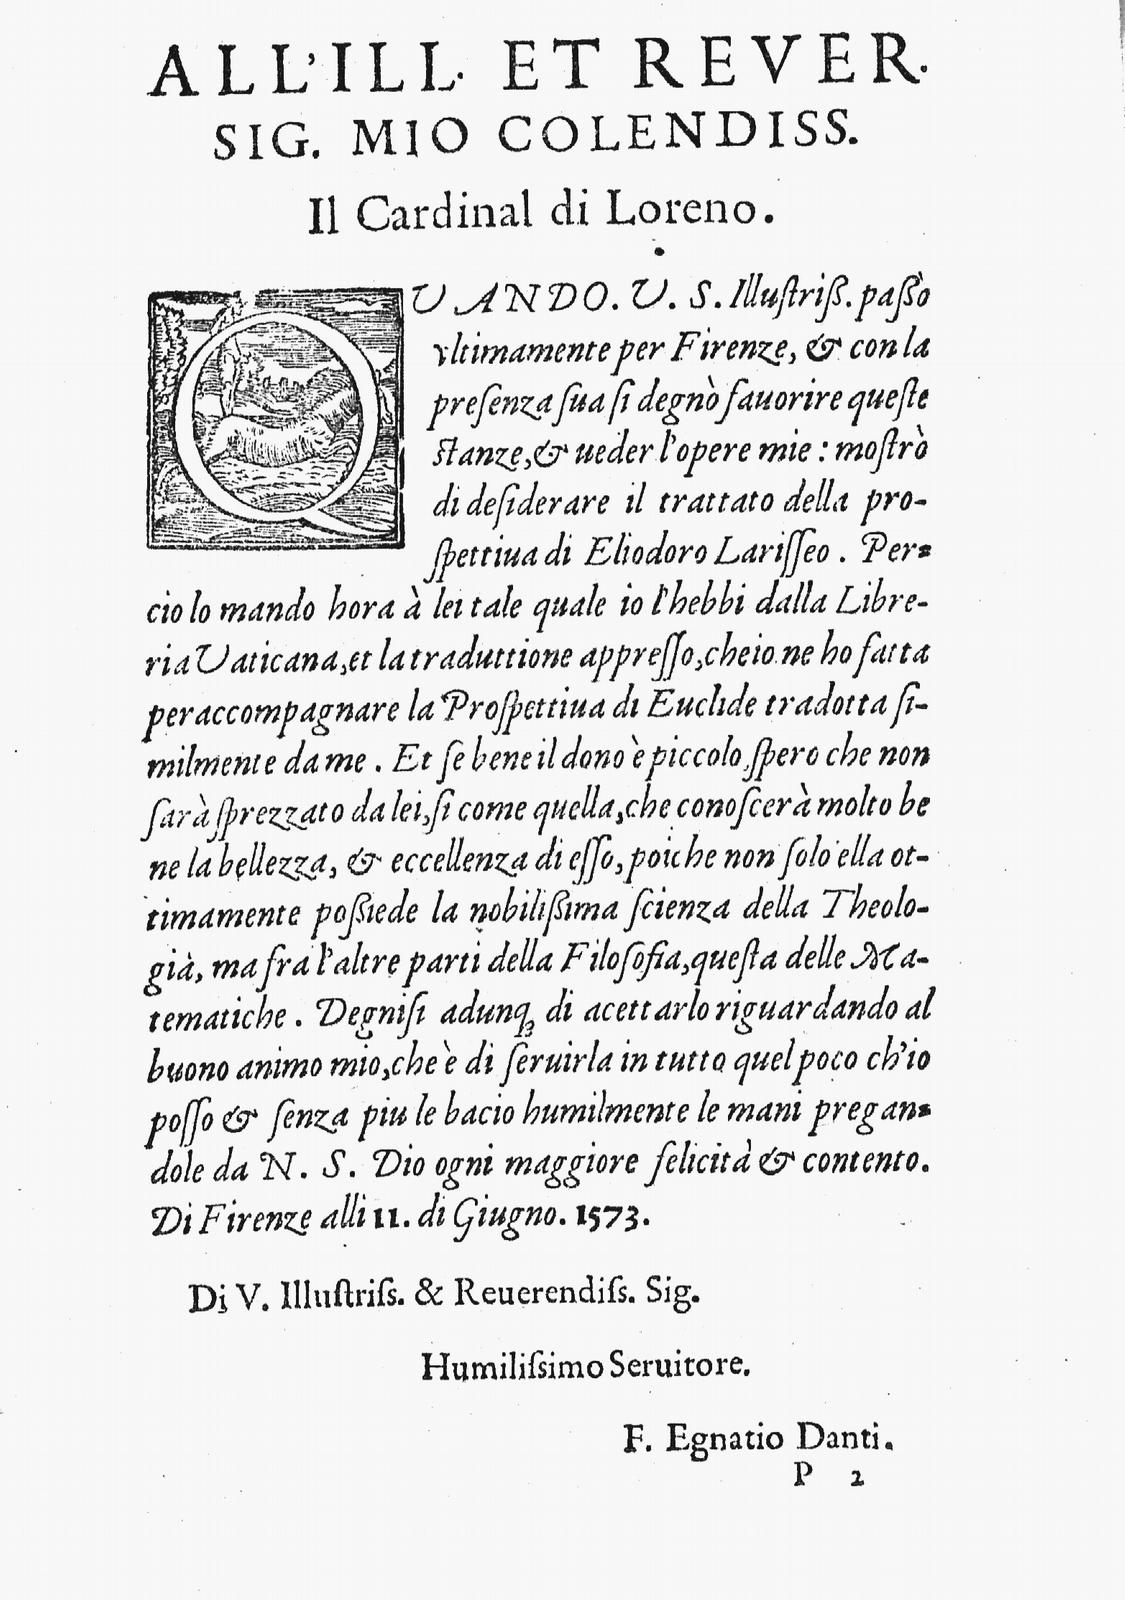 ALL'ILL. ET REVER.
SIG. MIO COLENDISS.
Il Cardinal di Loreno.
QUANDO. V. S. Illuſtriſſ. paſsò
vltimamente per Firenze, & con la
preſenza ſua ſi degnò fauorire queſte
ſtanze, & ueder l'opere mie : moſtrò
di deſiderare il trattato della pro-
ſpettiua di Eliodoro Lariſſeo . Per-
cio lo mando hora à lei tale quale io l'hebbi dalla Libre-
ria Vaticana, et la traduttione appreſſo, che io ne ho fatta
per accompagnare la Proſpettiua di Euclide tradotta ſi-
milmente da me . Et ſe bene il dono è piccolo, ſpero che non
ſarà ſprezzato da lei, ſi come quella, che conoſcerà molto be
ne la bellezza, & eccellenza di eſſo, poiche non ſolo ella ot-
timamente poſsiede la nobiliſsima ſcienza della Theolo-
già, ma fra l'altre parti della Filoſofia, queſta delle Ma-
tematiche . Degniſi adunq; di acettarlo riguardando al
buono animo mio, che è di ſeruirla in tutto quel poco ch'io
poſſo & ſenza piu le bacio humilmente le mani pregan-
dole da N. S. Dio ogni maggiore felicità & contento.
Di Firenze alli 11. di Giugno. 1573.
Di V. Illuſtriſs. & Reuerendiſs. Sig.
Humiliſsimo Seruitore.
F. Egnatio Danti.
P 2